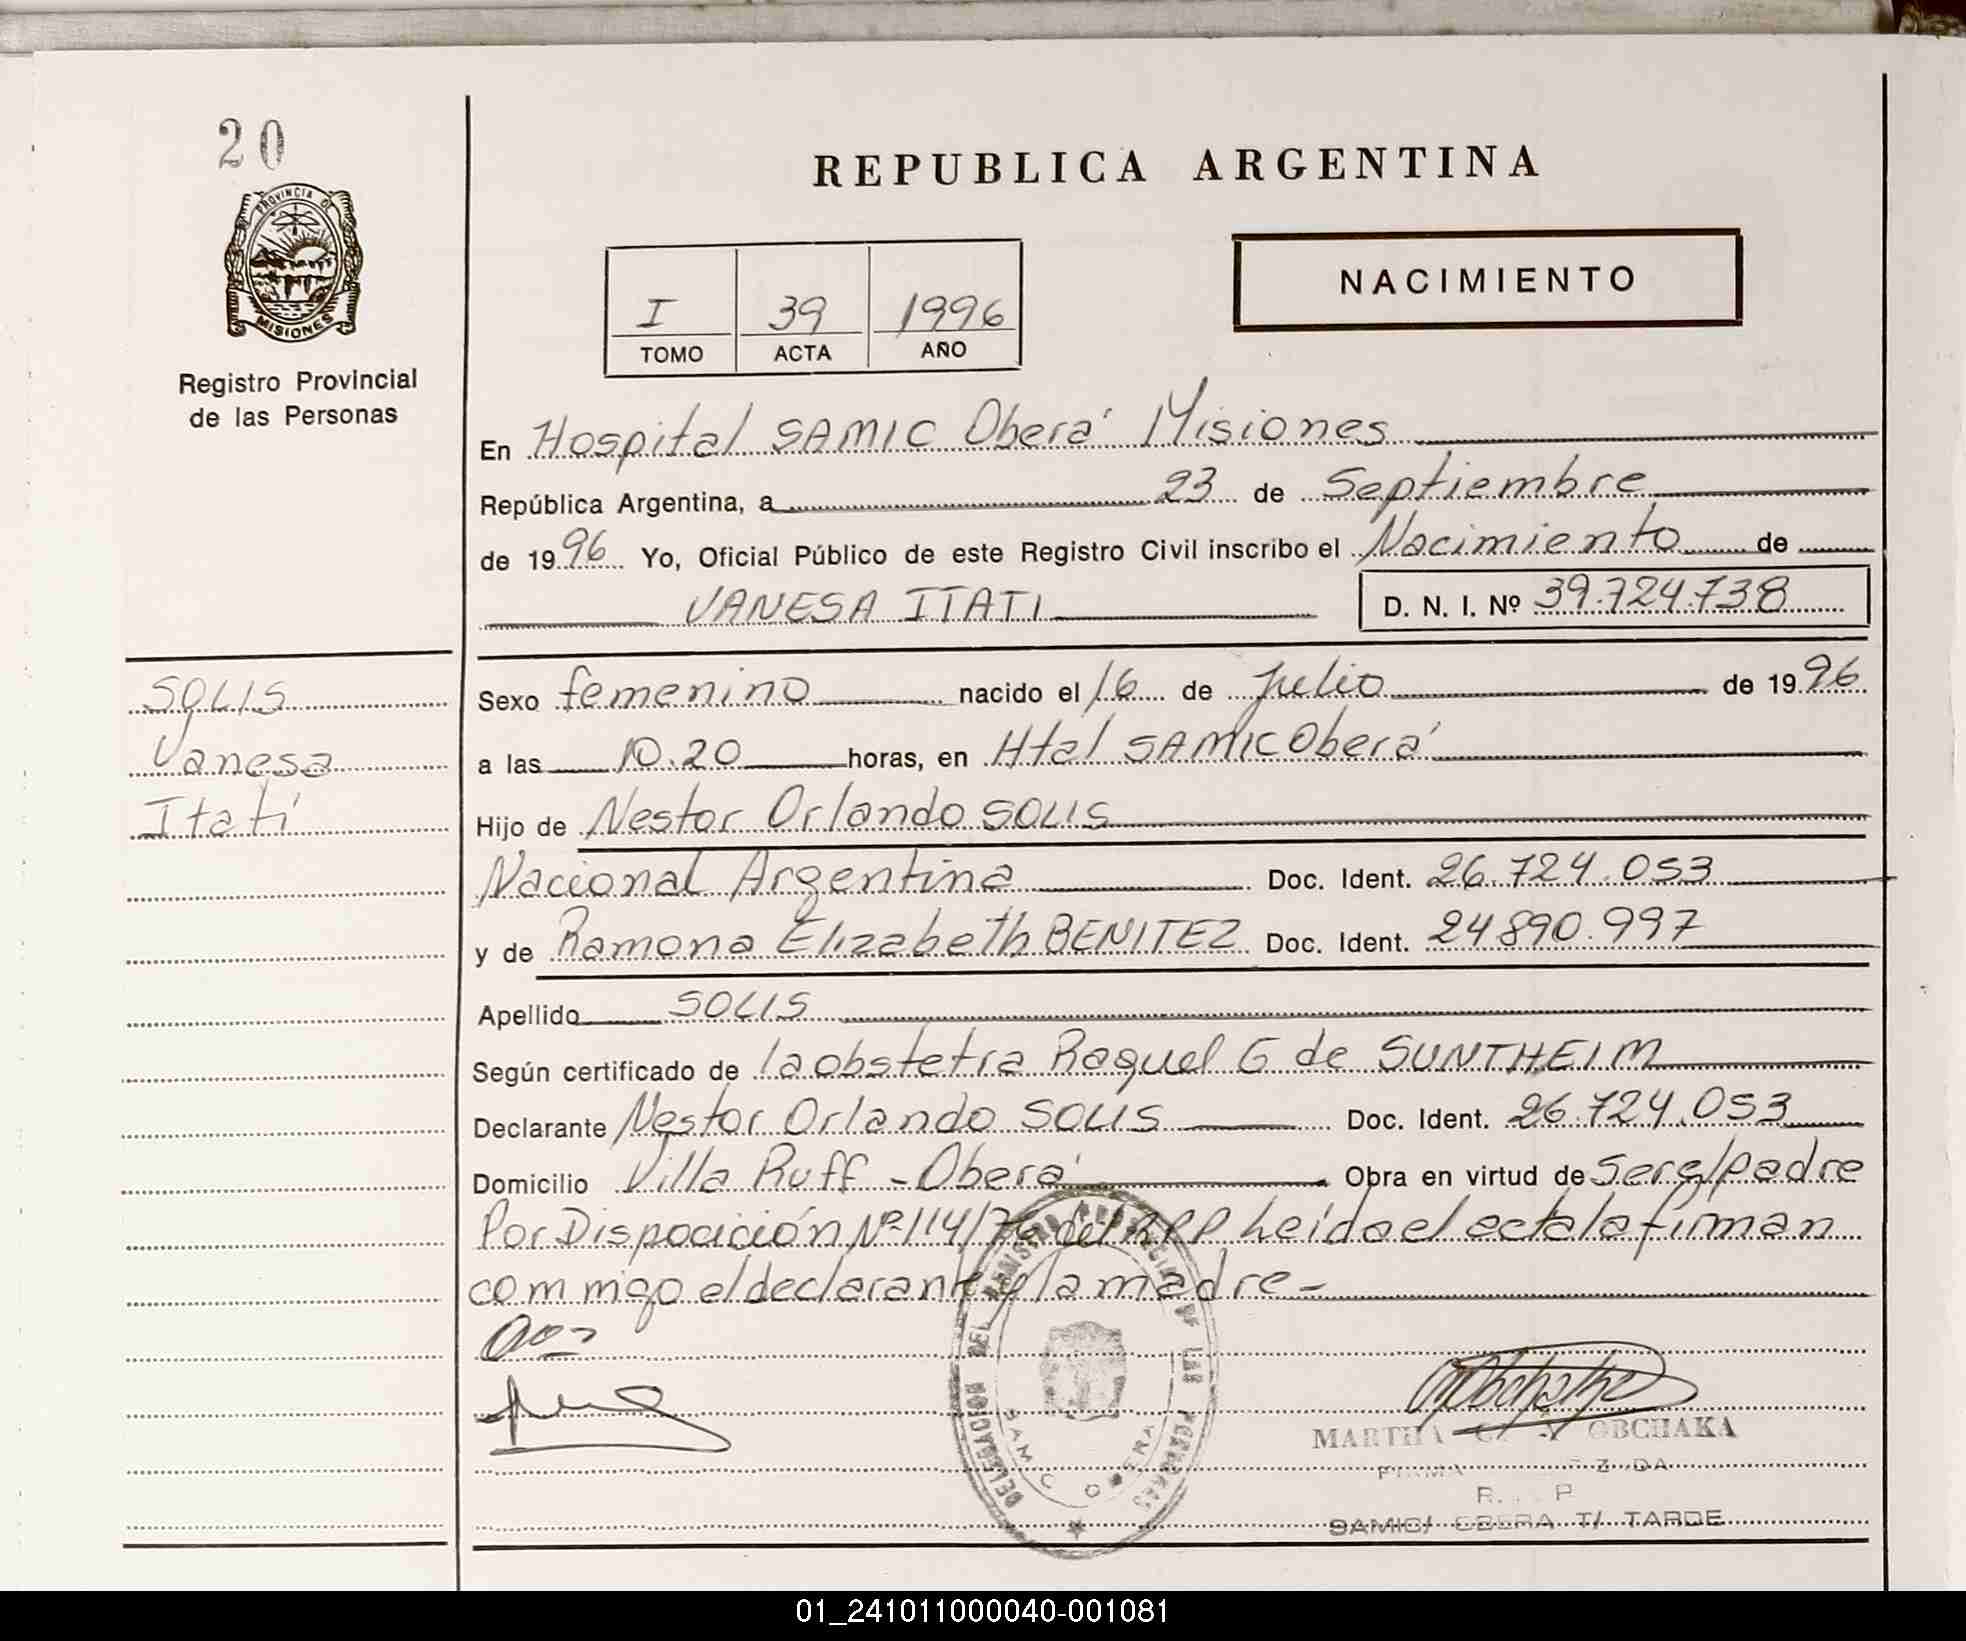 20
PROVINCIA DE
MISIONES
Registro Provincial
de las Personas
REPUBLICA ARGENTINA
NACIMIENTO
I 39 1996
TOMO ACTA AÑO
En Hospital SAMIC Oberá Misiones
República Argentina, a 23 de Septiembre
de 1996 Yo, Oficial Público de este Registro Civil inscribo el Nacimiento de
VANESA ITATI D. N. I. Nº 39.724.738
SOLIS
Vanesa
Itatí
Sexo femenino nacido el 16 de Julio de 1996
a las 10.20 horas, en Htal SAMIC Oberá
Hijo de Nestor Orlando SOLIS
Nacional Argentina Doc. Ident. 26.724.053
y de Ramona Elizabeth BENITEZ Doc. Ident. 24890.997
Apellido SOLIS
Según certificado de la obstetra Raquel G de SUNTHEIM
Declarante Nestor Orlando SOLIS Doc. Ident. 26.724.053
Domicilio Villa Ruff - Oberá Obra en virtud de Ser el padre
Por Disposición Nº 114/76 del RPP Leída el acta la firman
com migo el declarante y la madre -
DELEGACION DEL REGISTRO PROVINCIAL DE LAS PERSONAS
SAMIC OBERA
MARTHA OBCHAKA
SAMIC/ OBERA T/ TARDE
01_241011000040-001081